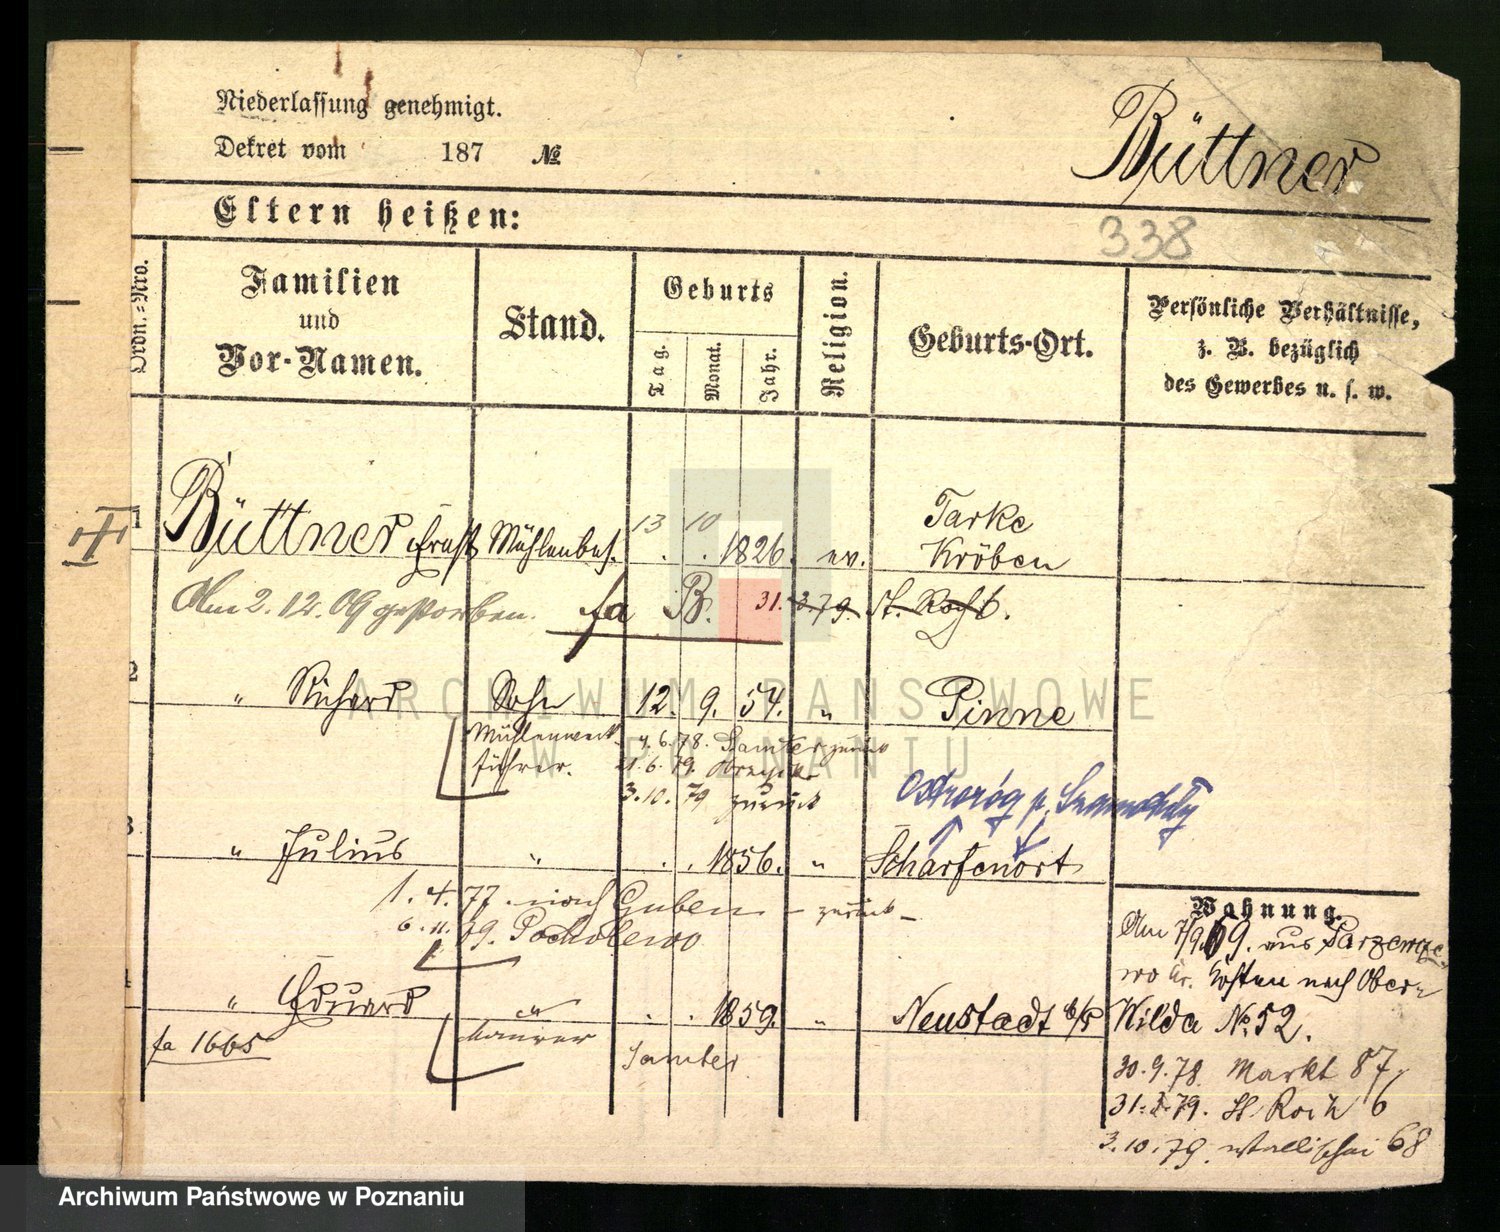 Niederlassung genehmigt.
Dekret vom 187 №
Büttner
Eltern heißen:
338
Ordn.=Nro.
Familien
und
Vor-Namen.
Stand.
Geburts
Tag.
Monat.
Jahr.
Religion.
Geburts-Ort.
Persönliche Verhältnisse,
z. B. bezüglich
des Gewerbes u. s. w.
1 Büttner Ernst Mühlenbes. 13 10 1826. ev. Tarke
Kröben
Am 2. 12. 09 gestorben. fa B. 31. 3. 79. St. Roch 6.
2 " Richard Sohn 12. 9. 54. " Pinne
Mühlenwerk-
führer.
4. 6. 78. Samter zurück
21. 6. 79.
3. 10. 79 zurück
Ostroróg p. Szamotuły
3 " Julius " . . 1856. " Scharfenort
1. 4. 77. nach Guben – zurück –
6. 11. 79. Pocholewo
4 " Eduard " . . 1859. " Neustadt b/P
fa 1665
Maurer
Samter
Wohnung.
Am 7/9. 69. aus
wo Kr. Kosten nach Ober-
Wilda № 52.
30. 9. 78. Markt 87.
31. 3. 79. St. Roch 6
3. 10. 79. Wallischei 68
ARCHIWUM PAŃSTWOWE
W POZNANIU
Archiwum Państwowe w Poznaniu